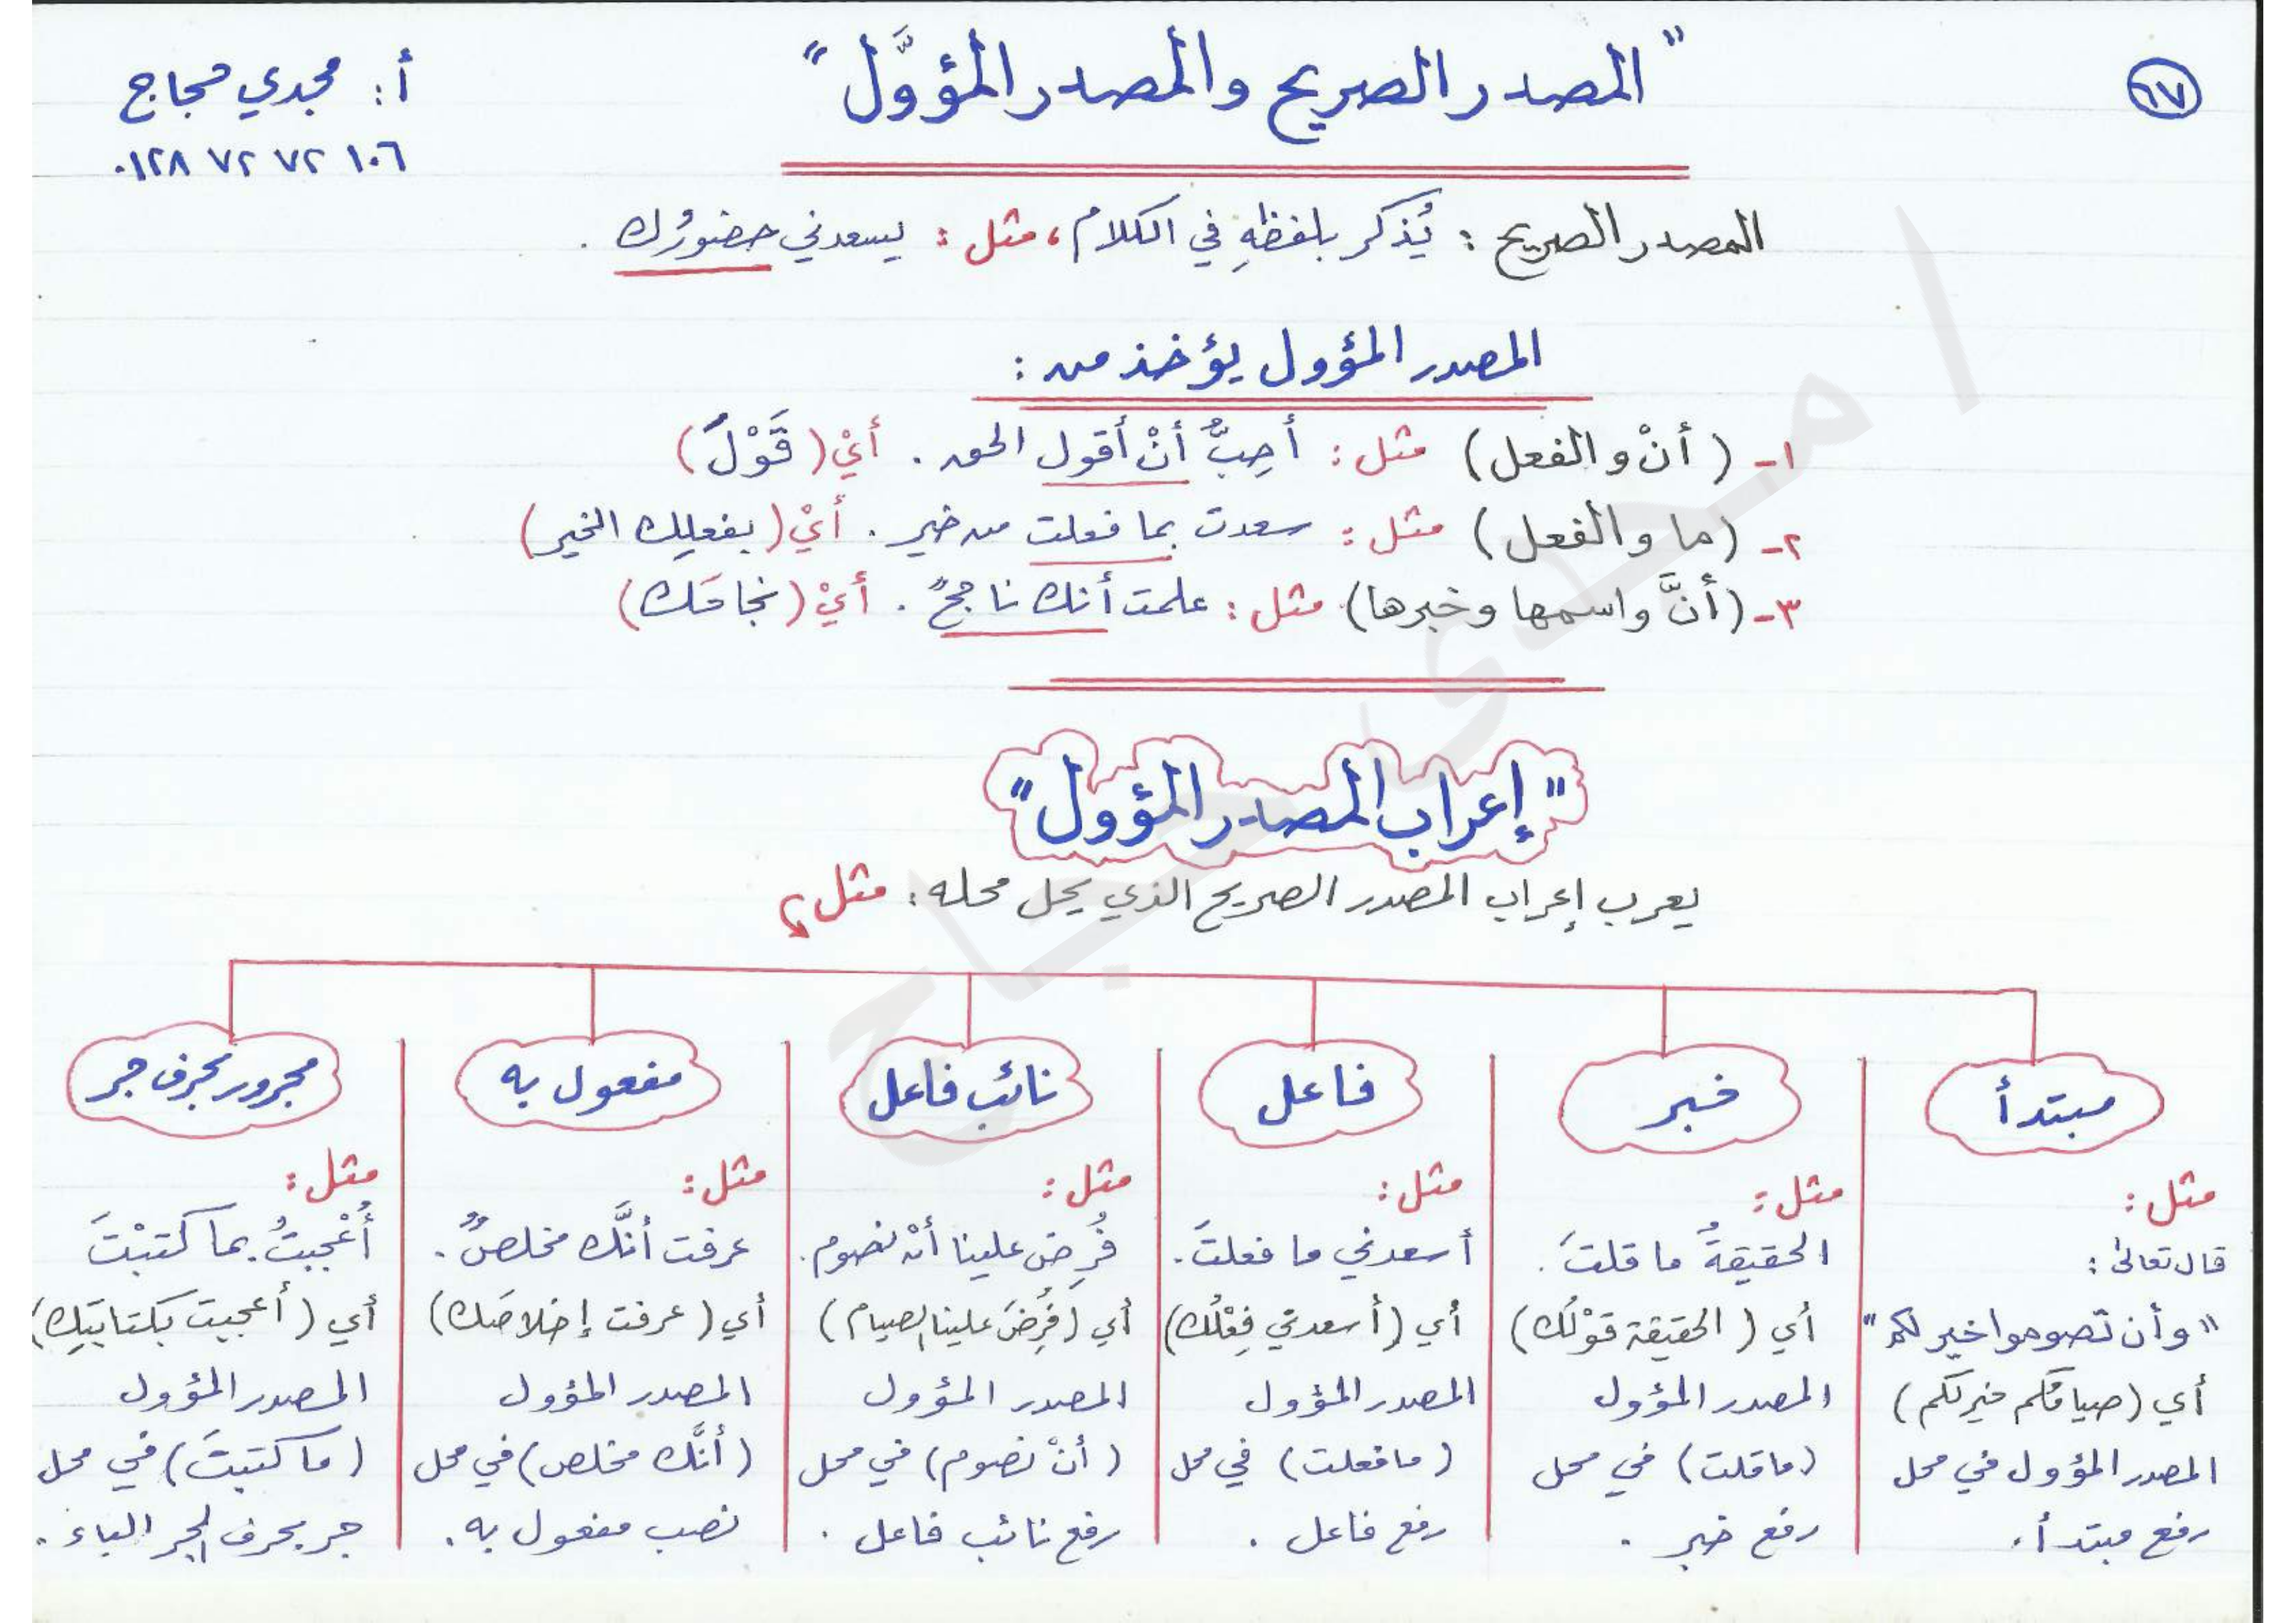 ١٧
"المصدر الصريح والمصدر المؤوَّل"
أ: مجدي حجاج
٠١٢٨ ٧٢ ٧٢ ١٠٦
المصدر الصريح : يُذكر بلفظهِ في الكلام، مثل : يسعدني حضورُك .
المصدر المؤول يؤخذ من :
١- (أنْ والفعل) مثل : أحِبُّ أنْ أقول الحق . أيْ (قَوْلَ)
٢- (ما والفعل) مثل : سعدت بما فعلت من خير . أيْ (بفعلِك الخير)
٣- (أنَّ واسمها وخبرها) مثل : علمت أنك ناجحٌ . أيْ (نجاحَك)
"إعراب المصدر المؤول"
يعرب إعراب المصدر الصريح الذي يحل محله : مثل
مبتدأ
مثل :
قال تعالى :
"وأن تصوموا خير لكم"
أي (صيامُكم خير لكم)
المصدر المؤول في محل
رفع مبتدأ .
خبر
مثل :
الحقيقةُ ما قلتَ .
أي (الحقيقة قوْلُك)
المصدر المؤول
(ما قلت) في محل
رفع خبر .
فاعل
مثل :
أسعدني ما فعلتَ .
أي (أسعدني فِعْلُك)
المصدر المؤول
(ما فعلت) في محل
رفع فاعل .
نائب فاعل
مثل :
فُرِض علينا أنْ نصوم .
أي (فُرِضَ علينا الصيام)
المصدر المؤول
(أنْ نصوم) في محل
رفع نائب فاعل .
مفعول به
مثل :
عرفت أنَّك مخلصٌ .
أي (عرفت إخلاصَك)
المصدر المؤول
(أنَّك مخلص) في محل
نصب مفعول به .
مجرور بحرف جر
مثل :
أُعْجبتُ بما كتبْتَ
أي (أعجبت بكتابتِك)
المصدر المؤول
(ما كتبتَ) في محل
جر بحرف الجر الباء .
أ/مجدى حجاج